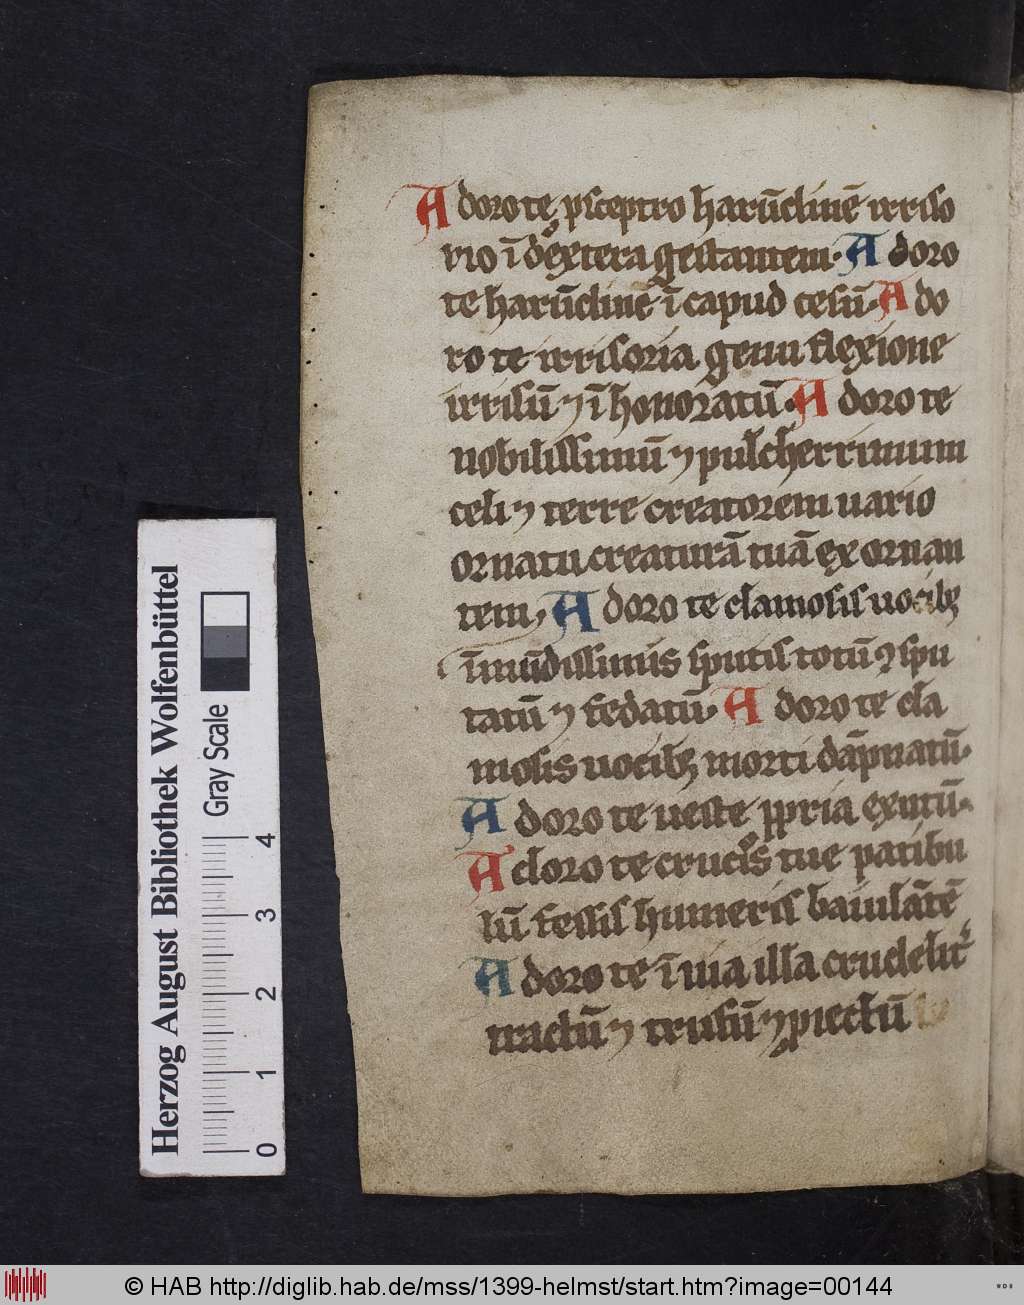 Adoro te p sceptro harūdinē irriso
rio ī dextera gestantem. Adoro
te harūdinē ī capud cesū. Ado
ro te irrisoria genu flexione
irrisū ⁊ īhonoratū. Adoro te
nobilissimū ⁊ pulcherrimum
celi ⁊ terre creatorem uario
ornatu creaturā tuā exornan
tem, Adoro te clamosis uocibꝫ
īmūdissimis sputis totū ꝯspu
tatū ⁊ fedatū. Adoro te cla
mosis uocibꝫ morti dāpnatū.
Adoro te ueste ꝓpria exutū.
Adoro te crucis tue patibu
lū fessis humeris baiulātē
Adoro te ī uia illa crudelit͛
tractū ⁊ trusū ⁊ ꝓiectū
Herzog August Bibliothek Wolfenbüttel
Gray Scale
0 1 2 3 4
© HAB http://diglib.hab.de/mss/1399-helmst/start.htm?image=00144